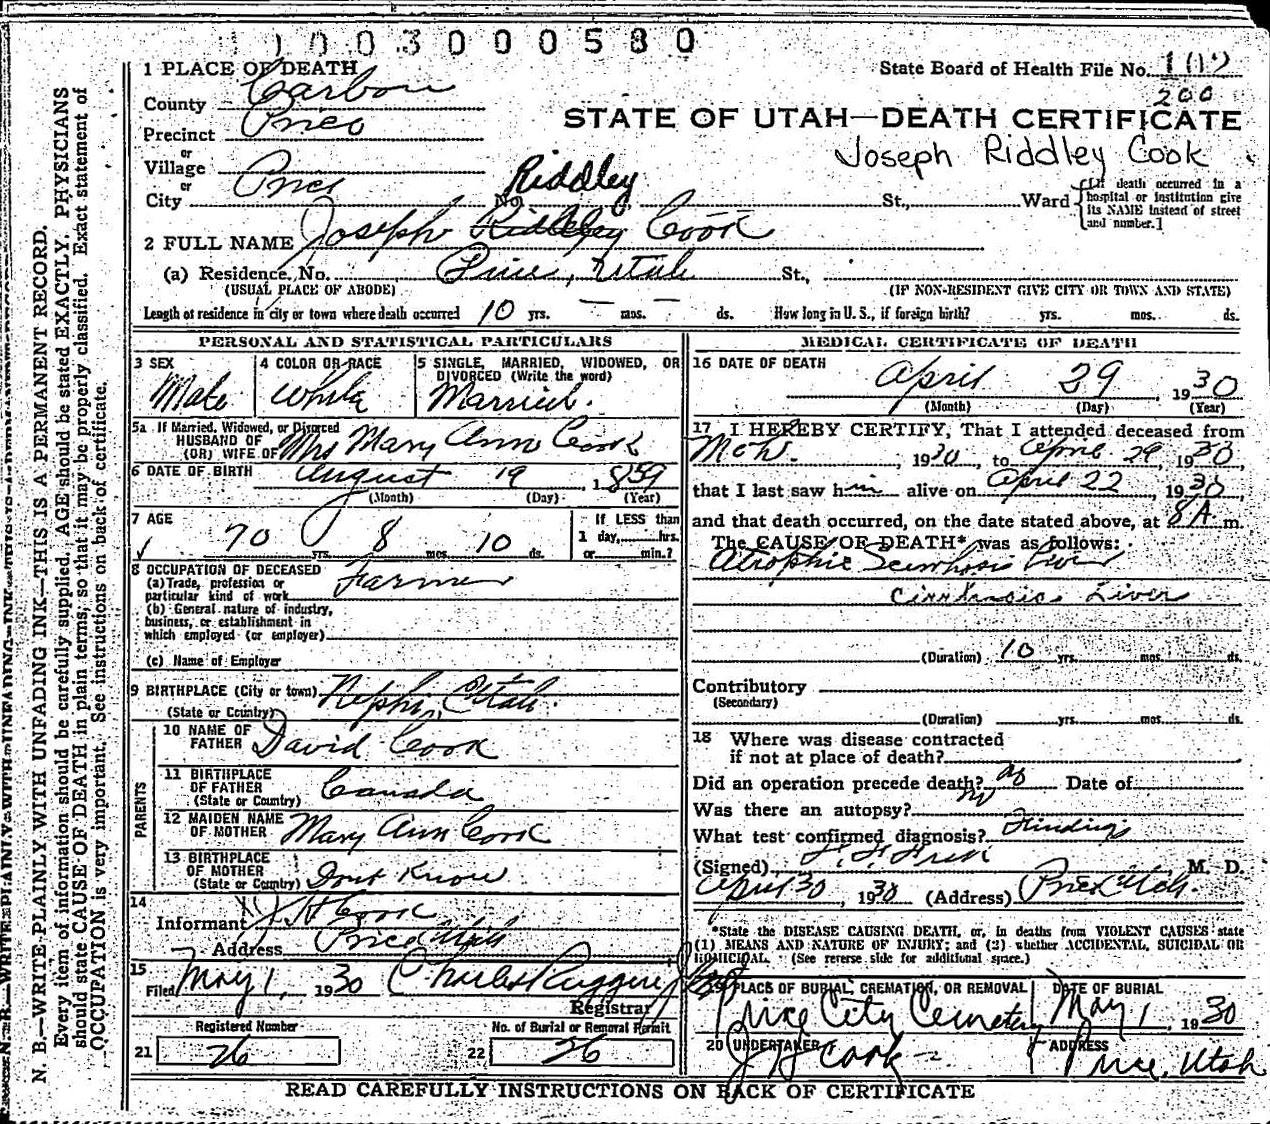 1003000580
1 PLACE OF DEATH
State Board of Health File No.
200
County Carbon
STATE OF UTAH—DEATH CERTIFICATE
Precinct Price
Joseph Riddley Cook
or
Village
or
City Price No. Riddley St., Ward
[If death occurred in a hospital or institution give its NAME instead of street and number.]
2 FULL NAME Joseph Riddley Cook
(a) Residence, No. Price, Utah St.,
(USUAL PLACE OF ABODE) (IF NON-RESIDENT GIVE CITY OR TOWN AND STATE)
Length of residence in city or town where death occurred 10 yrs. — mos. — ds. How long in U. S., if foreign birth? yrs. mos. ds.
PERSONAL AND STATISTICAL PARTICULARS
3 SEX
Male
4 COLOR OR RACE
White
5 SINGLE, MARRIED, WIDOWED, OR
DIVORCED (Write the word)
Married.
5a If Married, Widowed, or Divorced
HUSBAND OF
(OR) WIFE OF Mrs Mary Ann Cook
6 DATE OF BIRTH August 19 1859
(Month) (Day) (Year)
7 AGE
70 yrs. 8 mos. 10 ds.
If LESS than
1 day, hrs.
or min.?
8 OCCUPATION OF DECEASED
(a) Trade, profession or
particular kind of work Farmer
(b) General nature of industry,
business, or establishment in
which employed (or employer)
(c) Name of Employer
9 BIRTHPLACE (City or town) Nephi, Utah.
(State or Country)
PARENTS
10 NAME OF
FATHER David Cook
11 BIRTHPLACE
OF FATHER
(State or Country) Canada
12 MAIDEN NAME
OF MOTHER Mary Ann Cook
13 BIRTHPLACE
OF MOTHER
(State or Country) Dont Know
14
Informant J H Cook
Address Price Utah
15
Filed May 1, 1930 Charles Ruggeri
Registrar
Registered Number
21 26
No. of Burial or Removal Permit
22 26
MEDICAL CERTIFICATE OF DEATH
16 DATE OF DEATH
April 29, 1930
(Month) (Day) (Year)
17 I HEREBY CERTIFY, That I attended deceased from
Mch. , 1930, to April 29, 1930
that I last saw him alive on April 22, 1930
and that death occurred, on the date stated above, at 8 A m.
The CAUSE OF DEATH* was as follows:
Atrophic Liver
Cirrhosis Liver
(Duration) 10 yrs. mos. ds.
Contributory
(Secondary)
(Duration) yrs. mos. ds.
18 Where was disease contracted
if not at place of death?
Did an operation precede death? no Date of
Was there an autopsy? no
What test confirmed diagnosis? Findings
(Signed) M. D.
April 30, 1930 (Address) Price Utah.
*State the DISEASE CAUSING DEATH, or, in deaths from VIOLENT CAUSES state
(1) MEANS AND NATURE OF INJURY; and (2) whether ACCIDENTAL, SUICIDAL OR
HOMICIDAL. (See reverse side for additional space.)
19 PLACE OF BURIAL, CREMATION, OR REMOVAL
Price City Cemetery
DATE OF BURIAL
May 1, 1930
20 UNDERTAKER
J H Cook
ADDRESS
Price, Utah
READ CAREFULLY INSTRUCTIONS ON BACK OF CERTIFICATE
N. B.—WRITE PLAINLY WITH UNFADING INK—THIS IS A PERMANENT RECORD.
Every item of information should be carefully supplied. AGE should be stated EXACTLY. PHYSICIANS
should state CAUSE OF DEATH in plain terms, so that it may be properly classified. Exact statement of
OCCUPATION is very important. See instructions on back of certificate.